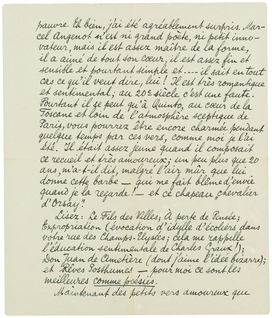 pauvre. Eh bien, j'ai été agréablement surpris. Mar-
cel Angenot n'est ni grand poète, ni petit inno-
vateur, mais il est assez maître de la forme,
il a aimé de tout son cœur, il est assez fin et
sensible et pourtant simple et .... il sait en tout
cas ce qu'il veut dire, lui! Il est très romantique
et sentimental; au 20e siècle c'est une faute.
Pourtant il se peut qu'à Quinto, au cœur de la
Toscane et loin de l'atmosphère sceptique de
Paris, vous pourrez être encore charmée pendant
quelque temps par ces vers, comme moi je l'ai
été. Il était assez jeune quand il composait
ce recueil et très amoureux; un peu plus que 20
ans, m'a-t-il dit, malgré l'air mûr que lui
donne cette barbe — qui me fait blême d'envie
quand je la regarde! — et ce chapeau chevalier
d'Orsay!
Lisez: Le Fils des Villes, À perte de Rusée,
Expropriation (évocation d'idylle d'écoliers dans
votre rue des Champs-Elysées; cela me rappelle
l'éducation sentimentale de Charles Graux);
Don Juan de Cimetière (dont j'aime l'idée bizarre);
et Rêves Posthumes — pour moi ce sont les
meilleures comme poésies.
Maintenant des petits vers amoureux que